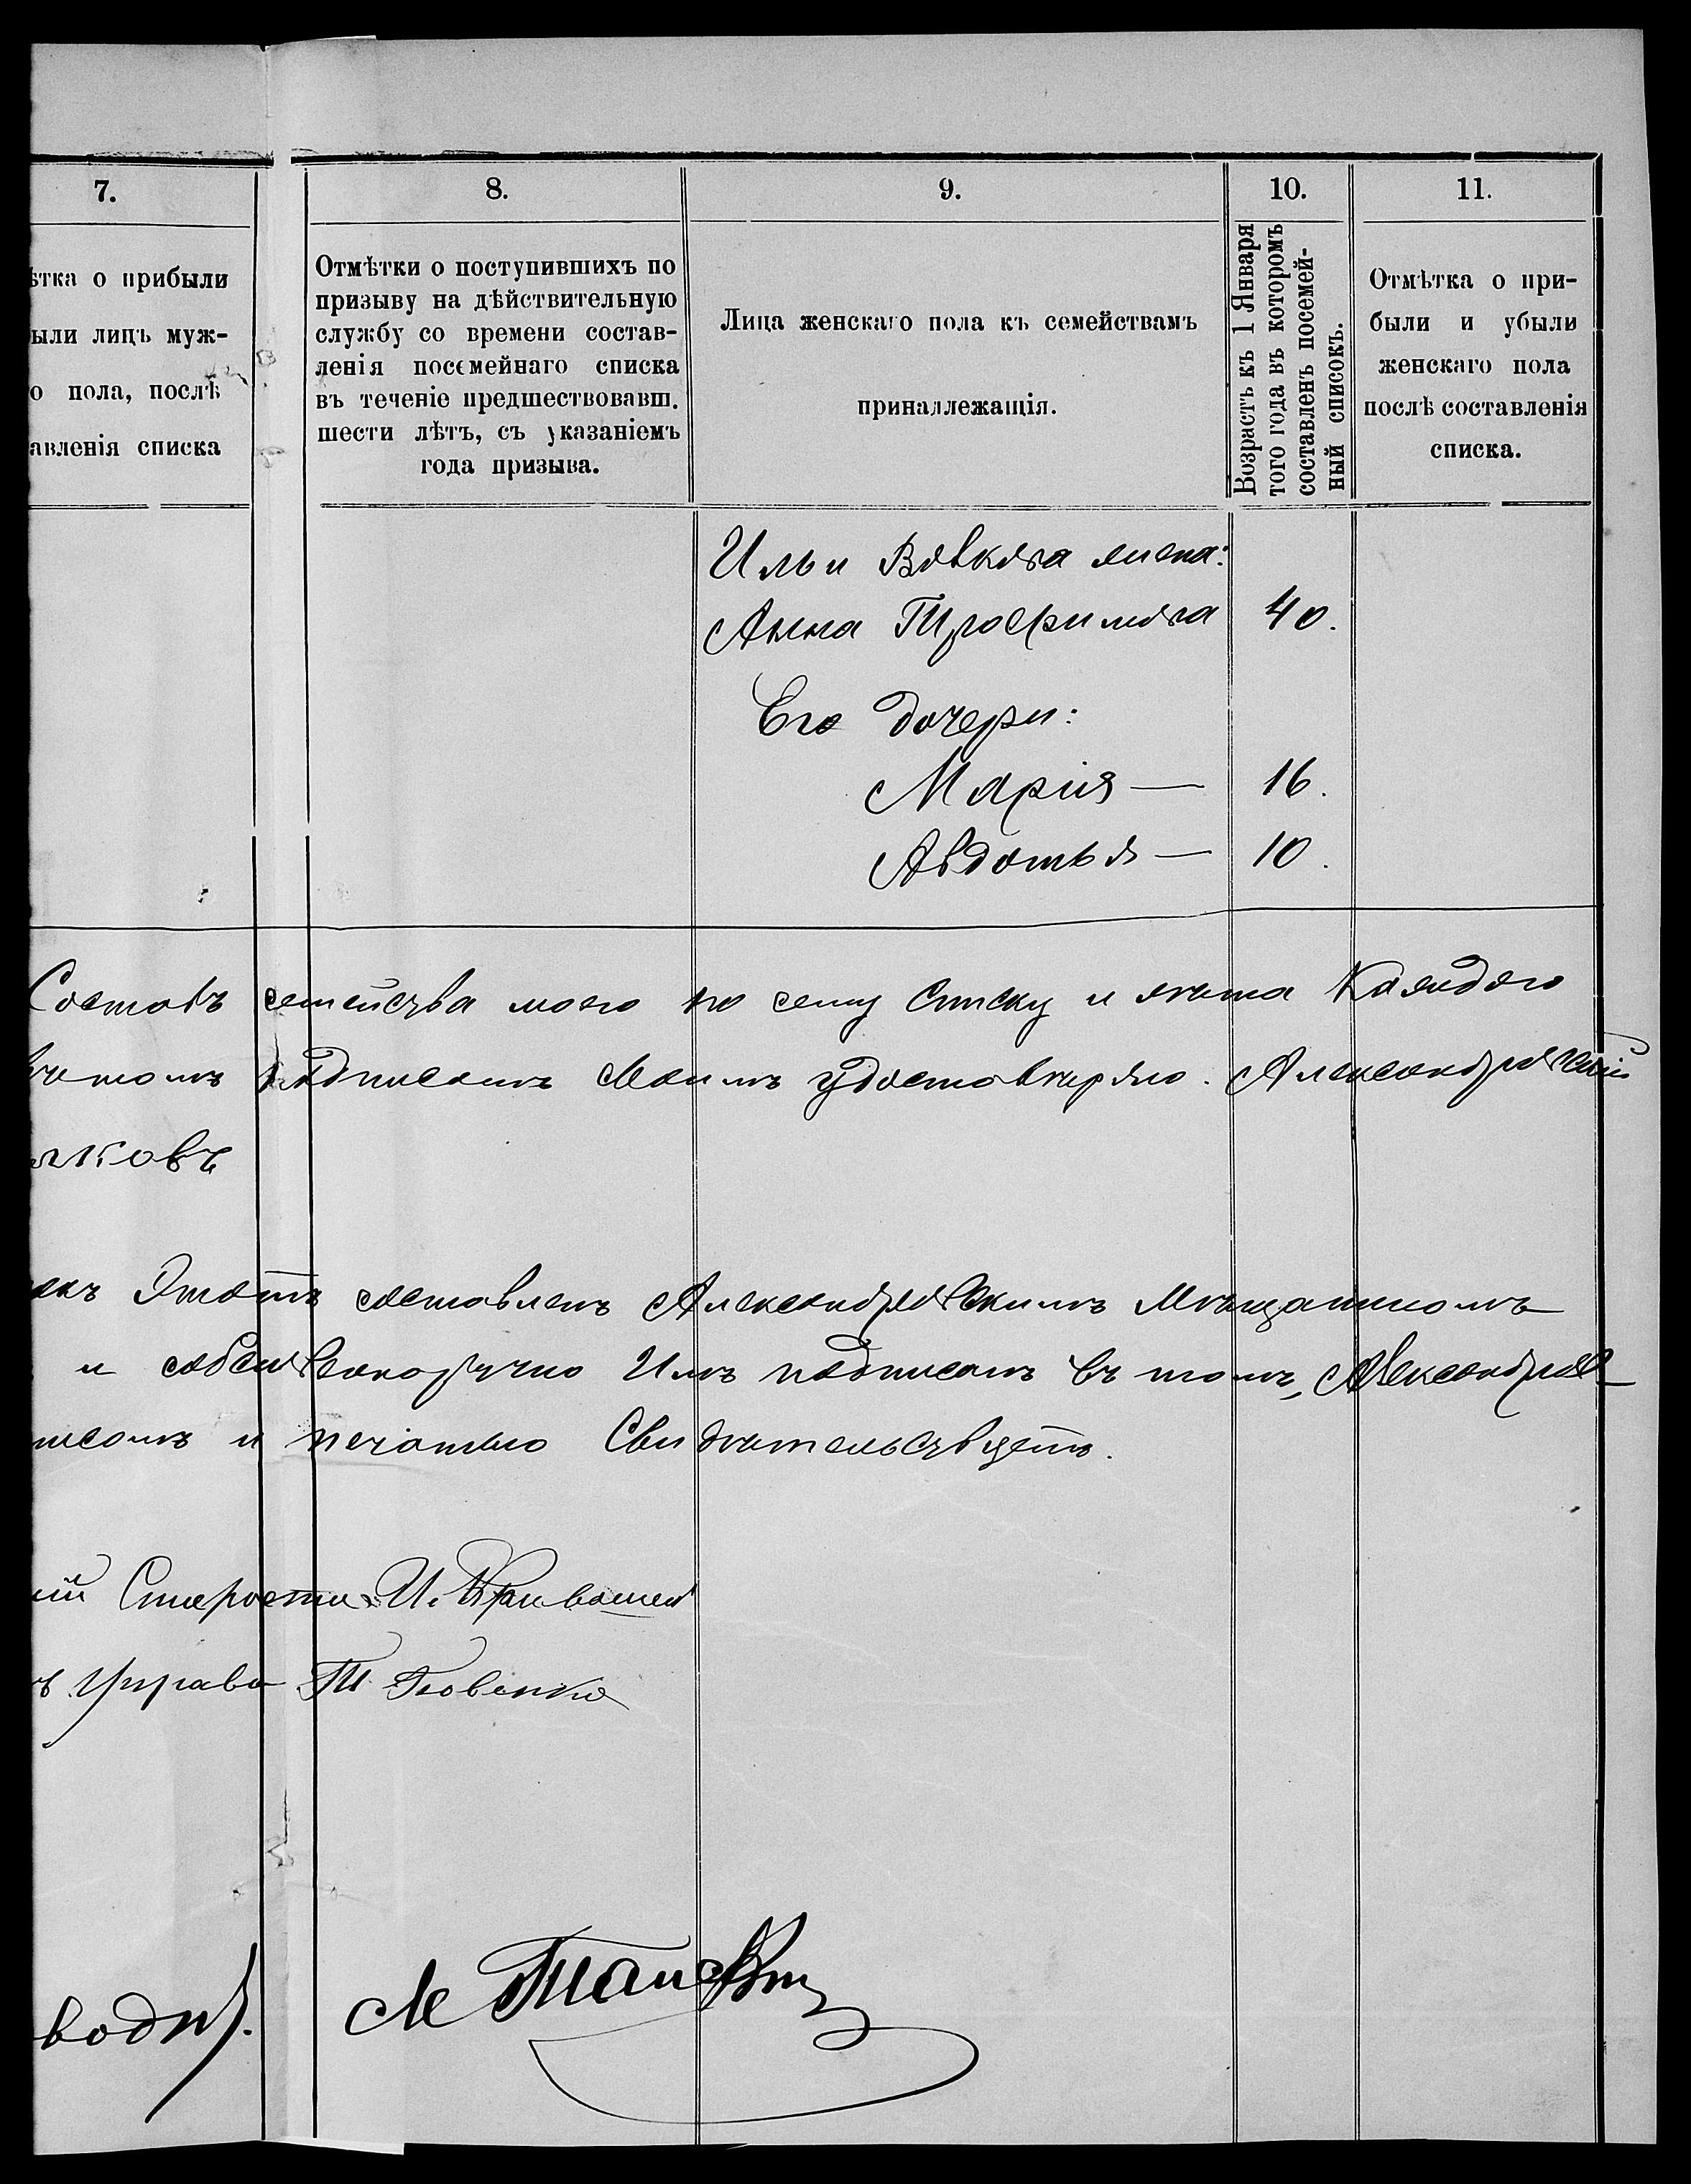 7.
8.
9.
10.
11.
ѣтка о прибыли
ыли лицъ муж-
о пола, послѣ
авленія списка
Отмѣтки о поступившихъ по
призыву на дѣйствительную
службу со времени состав-
ленія посемейнаго списка
въ теченіе предшествовавш.
шести лѣтъ, съ указаніемъ
года призыва.
Лица женскаго пола къ семействамъ
приналлежащія.
Возрастъ къ 1 Января
того года въ которомъ
составленъ посемей-
ный списокъ.
Отмѣтка о при-
были и убыли
женскаго пола
послѣ составленія
списка.
Ильи Волкова жена:
Анна Трофимова 40.
Его дочери:
Марія — 16.
Авдотья — 10.
Составъ семейства моего по сему списку и лѣта каждаго
подписомъ моимъ удостовѣряю. Александровскій
лковъ
окъ Этотъ составленъ Александровскимъ мѣщаниномъ
и собственоручно Имъ подписанъ въ томъ, Александров-
писомъ и печатью Свидѣтельствуетъ.
ій Староста И. Кривошея
ъ Управы Т.
водит.
М